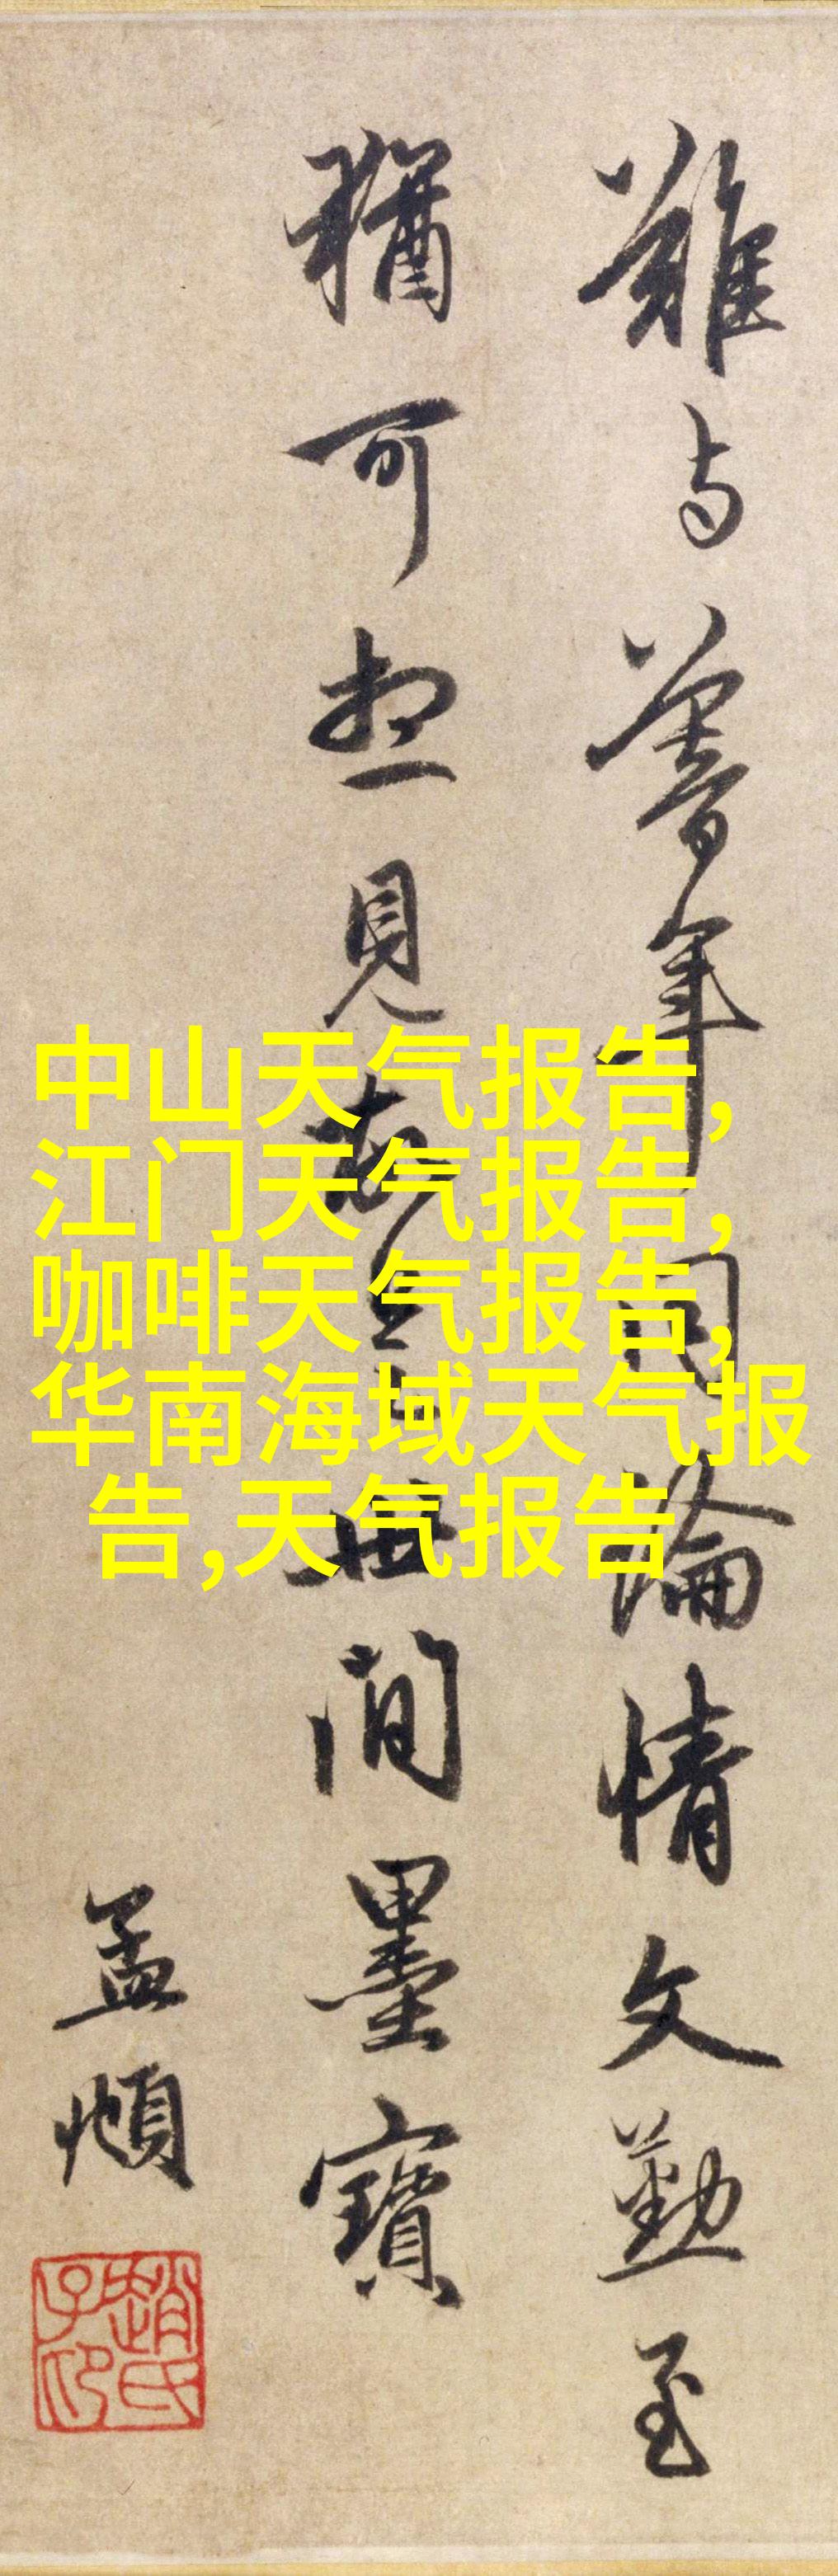 難与蕚年同論情文勤至
猶可想見故是世間墨寶
孟頫
趙氏子印
中山天气报告,
江门天气报告,
咖啡天气报告,
华南海域天气报
告,天气报告